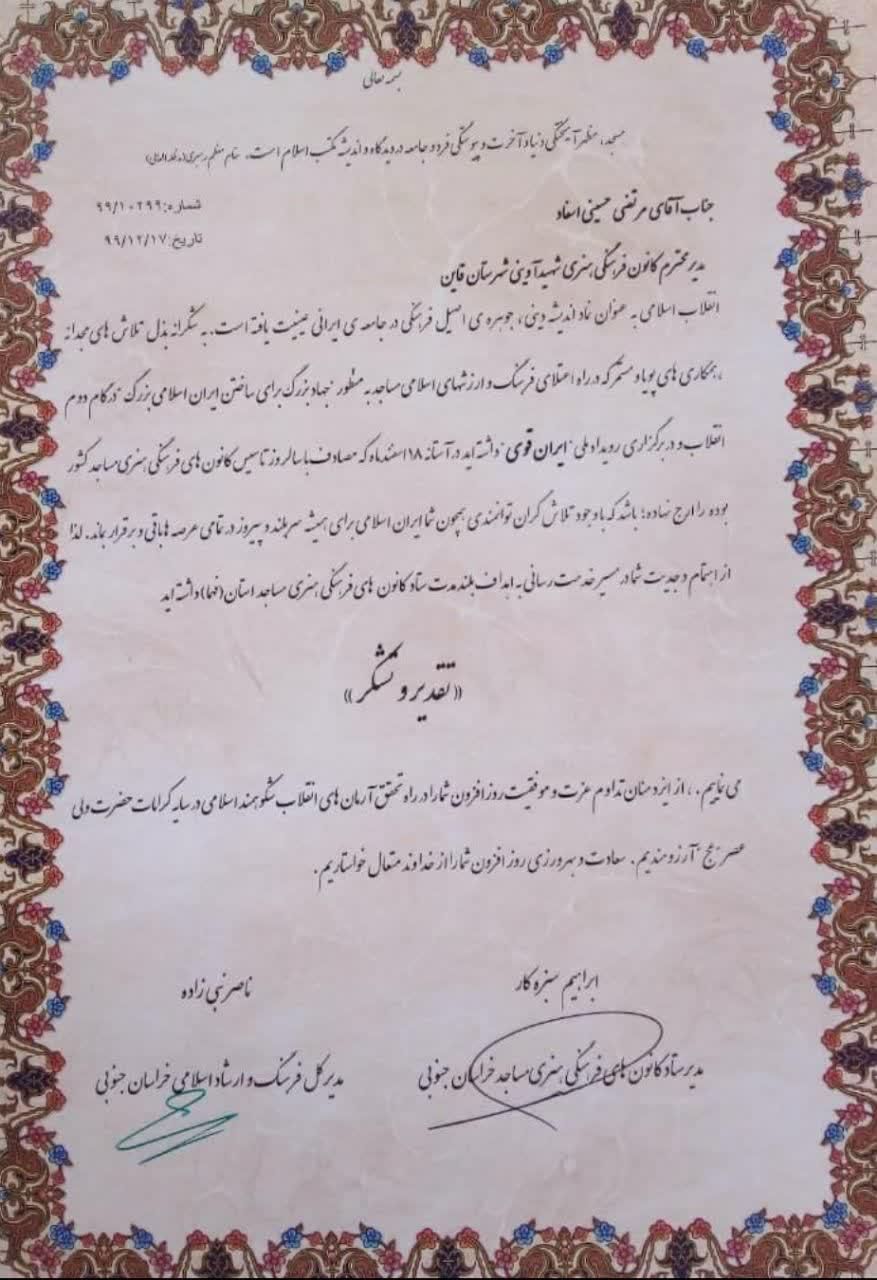 بسمه تعالی
مسجد، مظهر آمیختگی دنیا و آخرت و پیوستگی فرد و جامعه در دیدگاه و اندیشه مکتب اسلام است. مقام معظم رهبری(مدظله العالی)
جناب آقای مرتضی حسینی اسفاد
شماره:۹۹/۱۰۲۹۹
تاریخ:۹۹/۱۲/۱۷
مدیر محترم کانون فرهنگی هنری شهید آوینی شهرستان قاین
انقلاب اسلامی به عنوان نماد اندیشه دینی، جوهره ی اصیل فرهنگی در جامعه ی ایرانی عینیت یافته است. به شکرانه بذل تلاش های مجدانه
، همکاری های پویا و مستمر که در راه اعتلای فرهنگ و ارزشهای اسلامی مساجد به منظور "جهاد بزرگ برای ساختن ایران اسلامی بزرگ "در گام دوم
انقلاب و در برگزاری رویداد ملی "ایران قوی" داشته اید در آستانه ۱۸ اسفند ماه که مصادف با سالروز تاسیس کانون های فرهنگی هنری مساجد کشور
بوده را ارج نهاده؛ باشد که با وجود تلاش گران توانمندی همچون شما ایران اسلامی برای همیشه سربلند و پیروز در تمامی عرصه ها باقی و برقرار بماند. لذا
از اهتمام و جدیت شما در مسیر خدمت رسانی به اهداف بلند مدت ستاد کانون های فرهنگی هنری مساجد استان(فهما) داشته اید
«تقدیر و تشکر»
می نماییم. ، از ایزد منان تداوم عزت و موفقیت روز افزون شما را در راه تحقق آرمان های انقلاب شکوهمند اسلامی در سایه کرامات حضرت ولی
عصر "عج" آرزومندیم. سعادت و بهروزی روز افزون شما را از خداوند متعال خواستاریم.
ابراهیم سبزه کار
ناصر نبی زاده
مدیر ستاد کانون های فرهنگی هنری مساجد خراسان جنوبی
مدیر کل فرهنگ و ارشاد اسلامی خراسان جنوبی